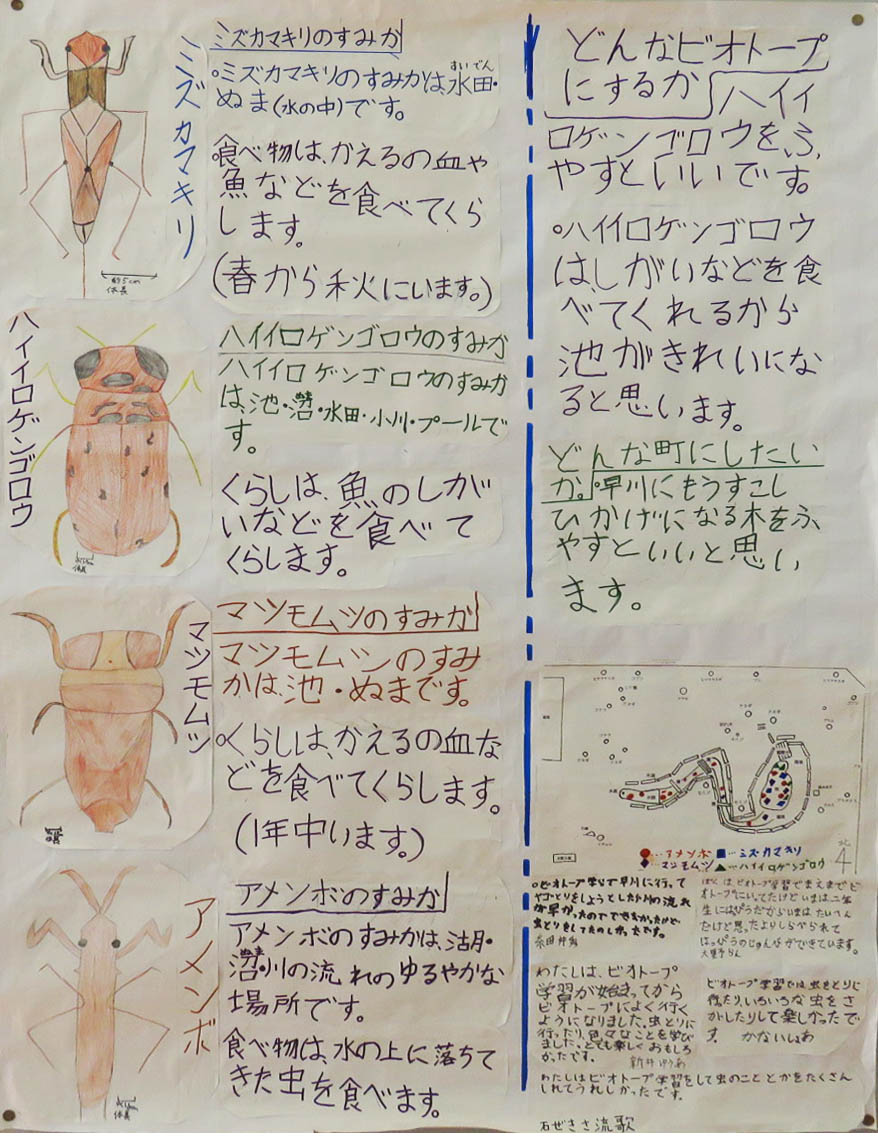 ミズカマキリ
ミズカマキリのすみか
ミズカマキリのすみかは水田・
すいでん
ぬま(水の中)です。
食べ物は、かえるの血や
魚などを食べてくら
します。
(春から秋にいます。)
体長
ハイイロゲンゴロウ
ハイイロゲンゴロウのすみか
ハイイロゲンゴロウのすみか
は、池・沼・水田・小川・プールで
す。
くらしは、魚のしが
いなどを食べて
くらします。
体長
マツモムツ
マツモムツのすみか
マツモムシのすみ
かは、池・ぬまです。
くらしは、かえるの血な
どを食べてくらします。
(1年中います。)
アメンボ
アメンボのすみか
アメンボのすみかは、湖・
沼・川の流れのゆるやかな
場所です。
食べ物は、水の上に落ちて
きた虫を食べます。
体長
どんなビオトープ
にするか
ハイイ
ロゲンゴロウをふ
やすといいです。
ハイイロゲンゴロウ
は、しがいなどを食
べてくれるから
池がきれいにな
ると思います。
どんな町にしたい
か。早川にもうすこし
ひかげになる木をふ
やすといいと思い
ます。
北
…アメンボ …ミズカマキリ
…マツモムツ …ハイイロゲンゴロウ
ビオトープ学習で早川に行って
ヤゴとりをしようとしたけど川の流れ
が早かったのでできなかったけど
虫とりをしてたのしかったです。
ぼくは、ビオトープ学習でまえまでビ
オトープにいってたけどいまは二年
生にはっぴょうだからいまはたいへん
だけど思ったよりしらべられて
はっぴょうのじゅんびができています。
わたしは、ビオトープ
学習が始まってから
ビオトープによく行く
ようになりました。虫とりに
行ったり、色々なことを学び
ました。とても楽しくおもしろ
かったです。
ビオトープ学習では虫をとりに
行ったり、いろいろな虫をさ
がしたりして楽しかったで
す。
わたしはビオトープ学習をして虫のこととかをたくさん
しれてうれしかったです。
石ぜきさ流歌